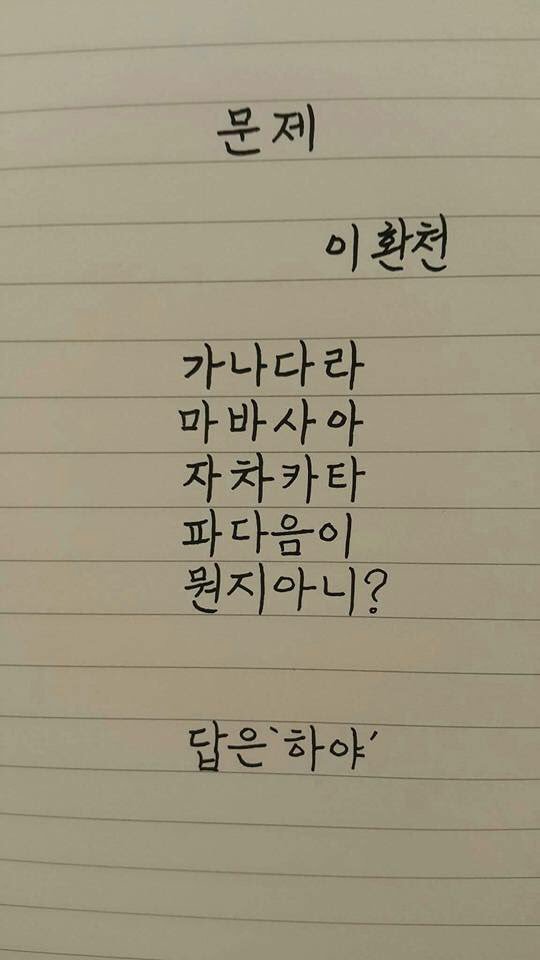 문제
이환천
가나다라
마바사아
자차카타
파다음이
뭔지아니?
답은'하야'